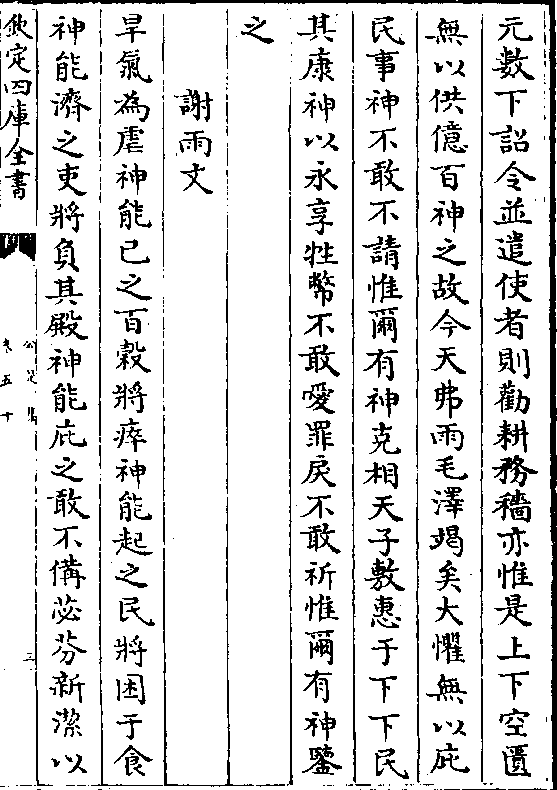 元數下詔令並遣使者則勸耕務穡亦惟是上下空匱
無以供億百神之故今天弗雨毛澤竭矣大懼無以庇
民事神不敢不請惟爾有神克相天子敷惠于下下民
其康神以永享牲幣不敢愛罪戾不敢祈惟爾有神鑒
之
謝雨文
旱氣為虐神能已之百穀將瘁神能起之民將困于食
神能濟之吏將負其殿神能庇之敢不備苾芬新潔以
欽定四庫全書
卷五十
三